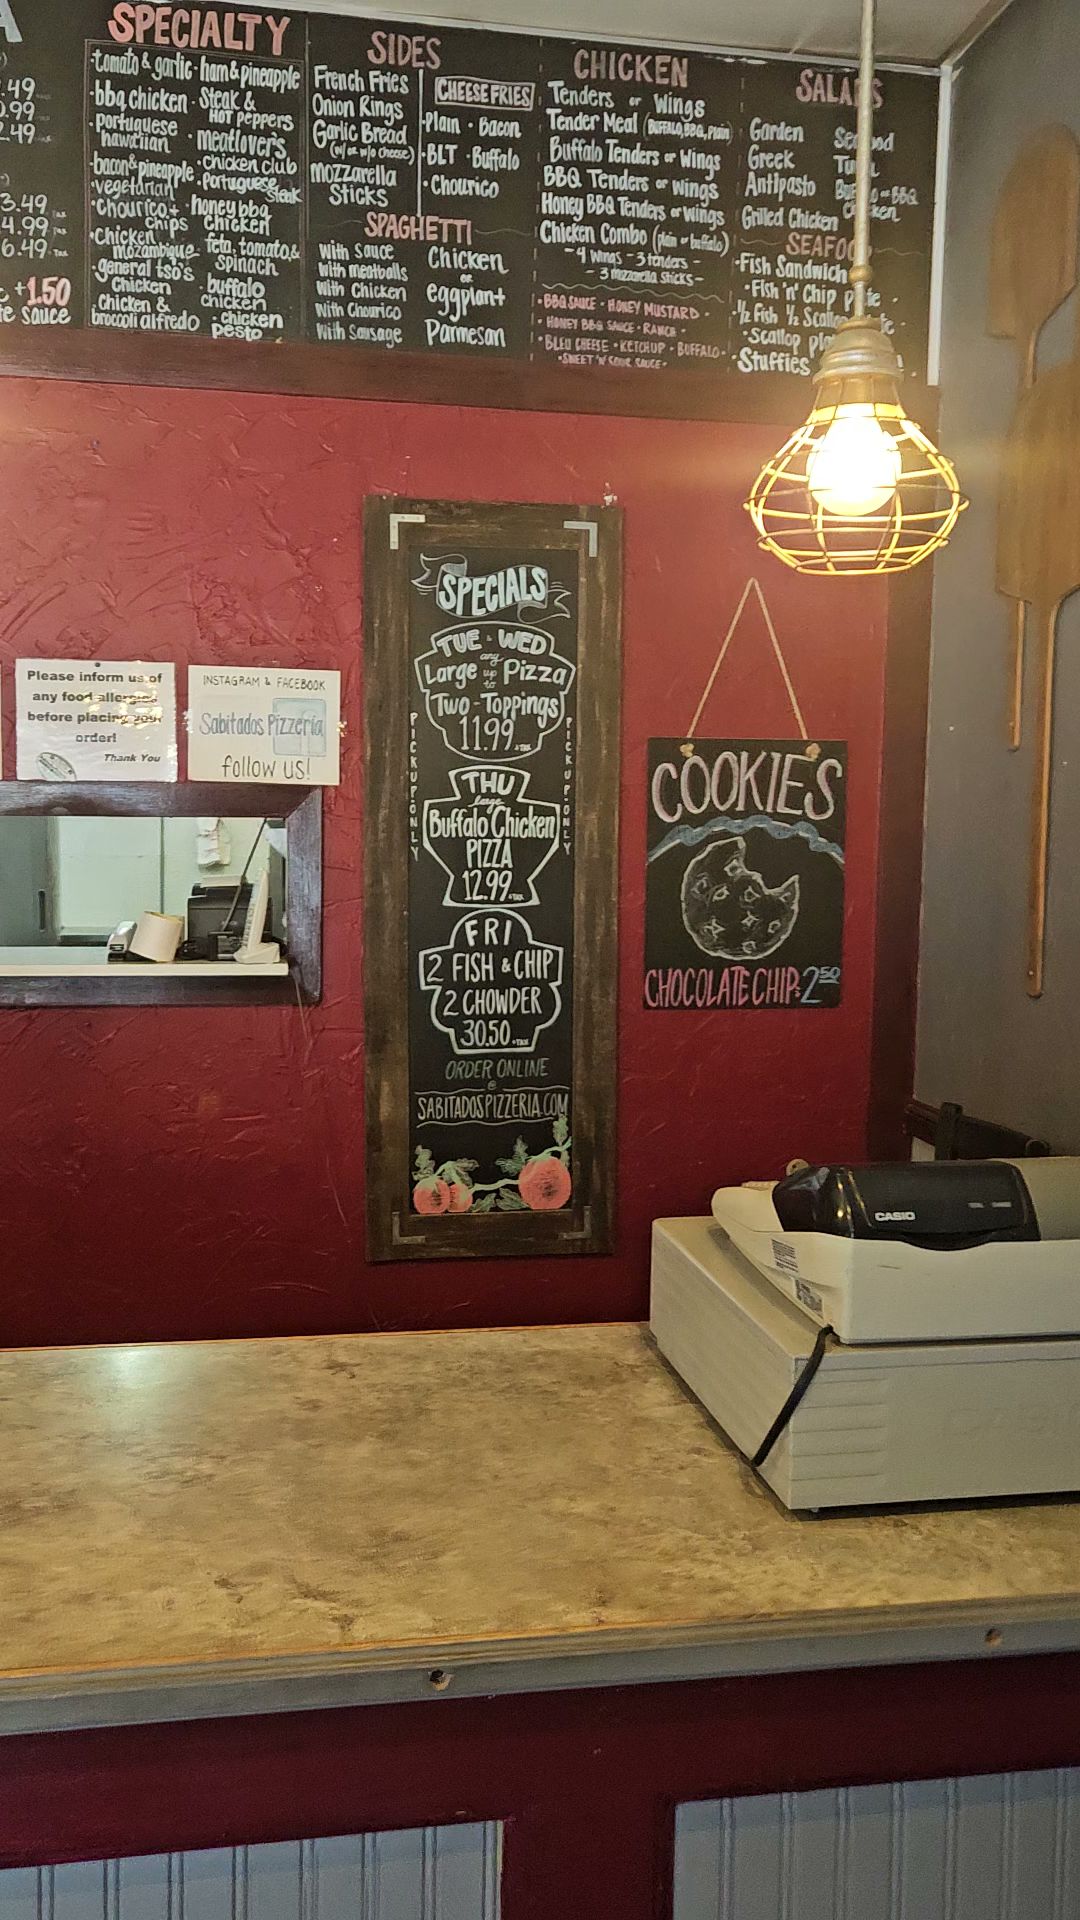 A
.49
0.99
2.49
3.49
4.99 +TAX
6.49 +TAX
+1.50
te sauce
SPECIALTY
·tomato & garlic
·bbq chicken
·portuguese
hawaiian
·bacon & pineapple
·vegetarian
·chourico +
chips
·Chicken
mozambique
·general tso's
Chicken
·chicken &
broccoli alfredo
·ham & pineapple
·Steak &
Hot peppers
·meatlover's
·chicken club
·Portuguese
steak
·honey bbq
chicken
·feta, tomato, &
spinach
·buffalo
chicken
·chicken
pesto
SIDES
French Fries
Onion Rings
Garlic Bread
(w/ or w/o cheese)
mozzarella
Sticks
CHEESE FRIES
·Plain · Bacon
·BLT · Buffalo
·Chourico
SPAGHETTI
With Sauce
With meatballs
With Chicken
With Chourico
With Sausage
Chicken
or
eggplant
Parmesan
CHICKEN
Tenders or Wings
Tender Meal (BUFFALO, BBQ, Plain)
Buffalo Tenders or Wings
BBQ Tenders or Wings
Honey BBQ Tenders or Wings
Chicken Combo (plain or buffalo)
- 4 Wings - 3 tenders -
- 3 mozzarella sticks -
·BBQ SAUCE · HONEY MUSTARD ·
·HONEY BBQ SAUCE · RANCH ·
·BLEU CHEESE · KETCHUP · BUFFALO ·
·SWEET 'N' SOUR SAUCE·
SALADS
Garden
Greek
Antipasto
Grilled Chicken
Seafood
Tuna
Buffalo or BBQ
chicken
SEAFOOD
·Fish Sandwich
·Fish 'n' Chip Plate
·½ Fish ½ Scallop Plate
·Scallop plate
·Stuffies
Please inform us of
any food allergies
before placing your
order!
Thank You
INSTAGRAM & FACEBOOK
Sabitados Pizzeria
follow us!
SPECIALS
TUE & WED
any
Large up to Pizza
Two-Toppings
11.99 +TAX
PICKUP ONLY
PICKUP ONLY
THU
large
Buffalo Chicken
PIZZA
12.99 +TAX
FRI
2 FISH & CHIP
2 CHOWDER
30.50 +TAX
ORDER ONLINE
@
SABITADOSPIZZERIA.COM
COOKIES
CHOCOLATE CHIP: 2.50
CASIO